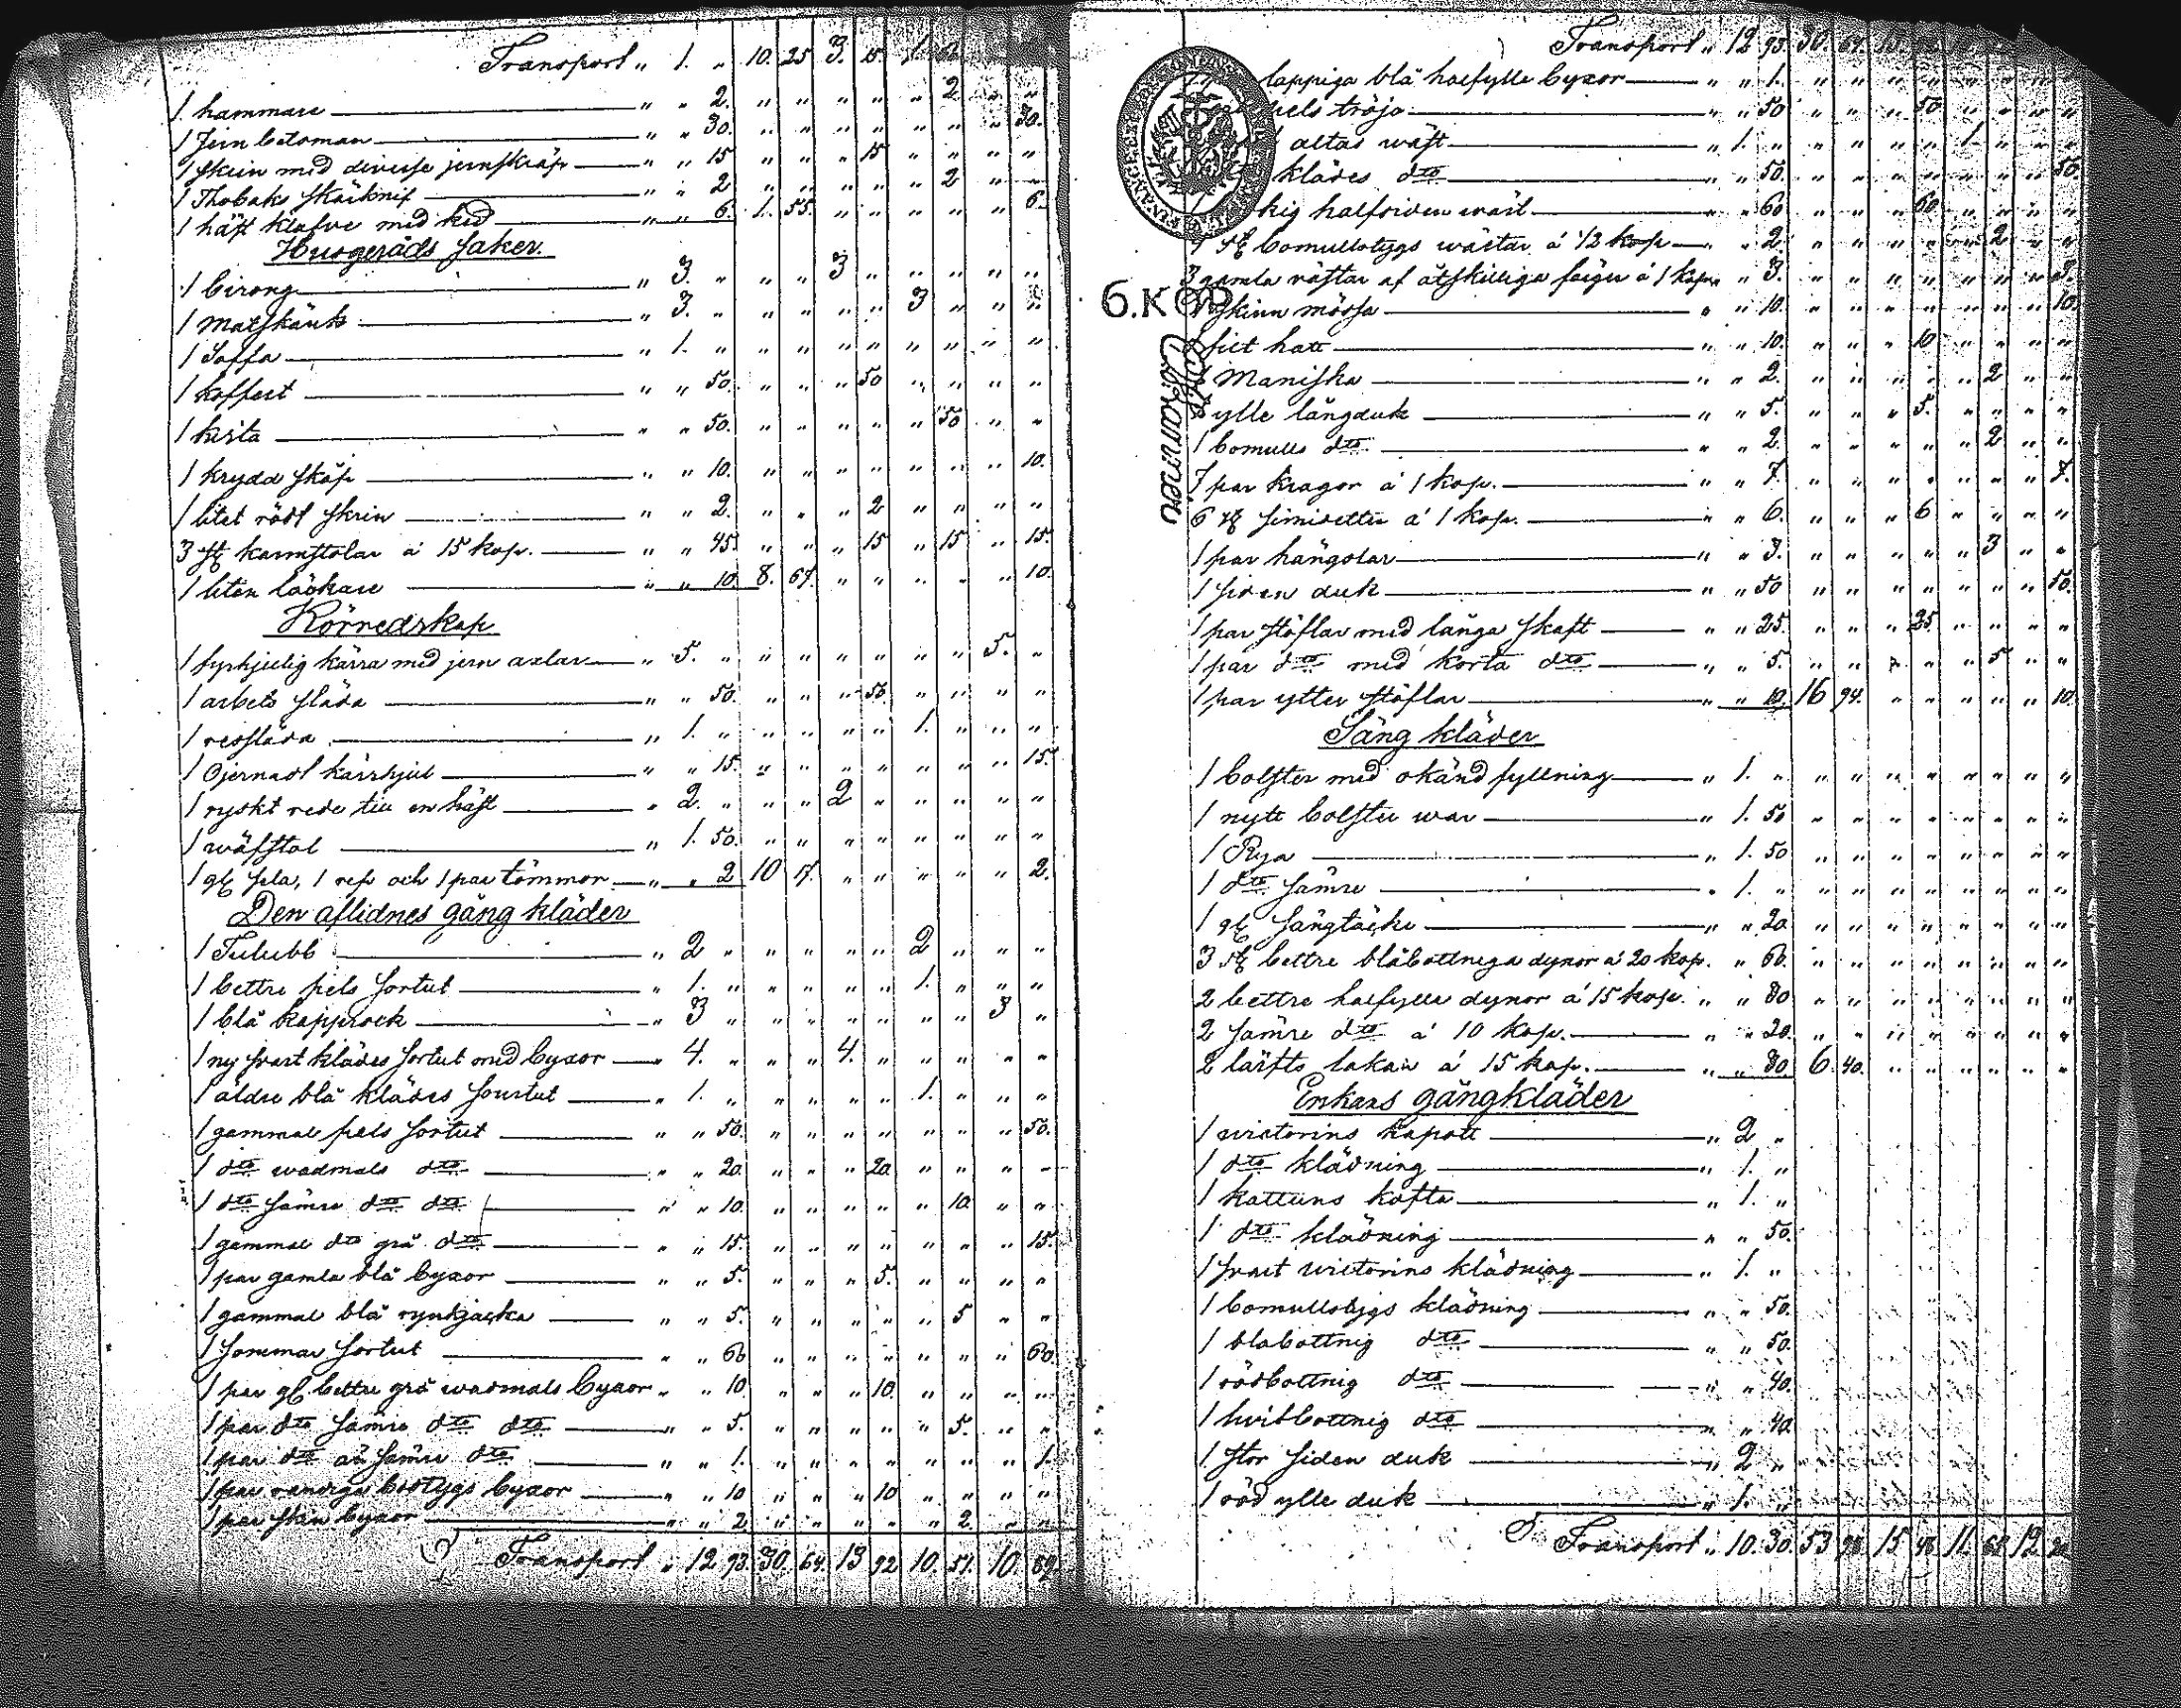 Transport „ 1. „ 10. 25 3. 15. 1.
1 hammare „ „ 2. „ „ „ „ „ 2 „ „
1 Jern betsman „ „ 30. „ „ „ „ „ „ „ 30.
1 skrin med diverse jernskräp „ „ 15 „ „ „ 15 „ „ „ „
1 Thobaks skärknif „ „ 2 „ „ „ „ „ 2 „ „
1 häst klafve med ked „ „ 6. 1. 55. „ „ „ „ „ 6.
Husgeråds saker.
1 Birong „ 3. „ „ „ 3 „ „ „ „ „
1 Matskänk „ 3. „ „ „ „ „ 3 „ „ „
1 Soffa „ 1. „ „ „ „ „ „ „ „ „
1 koffert „ „ 50. „ „ „ 50 „ „ „ „
1 kista „ „ 50. „ „ „ „ „ 50 „ „
1 krydd skåp „ „ 10. „ „ „ „ „ „ „ 10.
1 litet rödt skrin „ „ 2. „ „ „ 2 „ „ „ „
3 st karmstolar á 15 kop. „ „ 45. „ „ „ 15 „ 15 „ 15.
1 liten läskare „ „ 10. 8. 67. „ „ „ „ „ 10.
Körredskap
1 fyrhjulig kärra med jern axlar „ 5. „ „ „ „ „ „ „ 5. „
1 arbets släda „ „ 50. „ „ „ 50 „ „ „ „
1 ressläda „ 1. „ „ „ „ „ 1. „ „ „
1 Ojernadt kärrhjul „ „ 15. „ „ „ „ „ „ „ 15.
1 ryskt rede till en häst „ 2. „ „ „ 2 „ „ „ „ „
1 wäfstol „ 1. 50. „ „ „ „ „ „ „ „
1 gl sela, 1 rep och 1 par tömmor „ „ 2 10 17. „ „ „ „ „ 2.
Den aflidnes gång kläder
1 Tulubb „ 2 „ „ „ „ „ 2 „ „ „
1 bettre pels sortut „ 1. „ „ „ „ „ 1. „ „ „
1 blå kapprock „ 3 „ „ „ „ „ „ „ 3 „
1 ny svart klädes sortut med byxor „ 4. „ „ „ 4. „ „ „ „ „
1 äldre blå klädes sourtut „ 1. „ „ „ „ „ 1. „ „ „
1 gammal pels sortut „ „ 50. „ „ „ „ „ „ „ 50.
1 dto wadmals dto „ „ 20. „ „ „ 20. „ „ „ „
1 dto sämre dto dto „ „ 10. „ „ „ „ „ 10. „ „
1 gammal dto grå dto „ „ 15. „ „ „ „ „ „ „ 15.
1 par gamla blå byxor „ „ 5. „ „ „ 5. „ „ „ „
1 gammal blå rynkjacka „ „ 5. „ „ „ „ „ 5 „ „
1 Sommar sortut „ „ 60 „ „ „ „ „ „ „ 60.
1 par gl. bettre grå wadmals byxor „ „ 10. „ „ „ 10. „ „ „ „
1 par dto sämre dto dto „ „ 5. „ „ „ „ „ 5. „ „
1 par dto än sämre dto „ „ 1. „ „ „ „ „ „ „ 1.
1 par randiga bodtygs byxor „ „ 10 „ „ „ 10 „ „ „ „
1 par skin byxor „ „ 2 „ „ „ „ „ 2. „ „
Transport „ 12 93. 30. 64. 13 92 10. 51. 10. 69.
Transport „ 12 30. 64.
lappiga blå halfylle byxor „ „ 1. „ „ „ „ „ „ „ „
pels tröja „ „ 50 „ „ „ 50 „ „ „ „
altas wäst „ 1. „ „ „ „ „ „ 1. „ „
klädes dto „ „ 50. „ „ „ „ „ „ „ 50.
kig halfsiden wäst „ „ 60 „ „ „ 60 „ „ „ „
st bomullstygs wästar á 1/2 kop „ „ 2. „ „ „ „ „ 2 „ „
3 gamla wästar af åtskilliga färger á 1 kop „ „ 3. „ „ „ „ „ „ „ 3.
6.КОП
1 skinn mössa „ „ 10. „ „ „ „ „ „ „ 10.
filt hatt „ „ 10. „ „ „ 10 „ „ „ „
1 Maniska „ „ 2. „ „ „ „ „ 2 „ „
ylle långduk „ „ 5. „ „ „ 5. „ „ „ „
1 bomulls dto „ „ 2. „ „ „ „ „ 2 „ „
7 par kragor á 1 kop. „ „ 7. „ „ „ „ „ „ „ 7.
6 st simisetter á 1 kop. „ „ 6. „ „ „ 6 „ „ „ „
1 par hängslar „ „ 3. „ „ „ „ „ 3 „ „
1 siden duk „ „ 50 „ „ „ „ „ „ „ 50.
1 par stöflar med långa skaft „ „ 25. „ „ „ 25. „ „ „ „
1 par dto med korta dto „ „ 5. „ „ „ „ „ 5 „ „
1 par ytter stöflar „ „ 10. 16 94. „ „ „ „ „ 10.
Säng kläder
1 bolster med okänd fyllning „ 1. „ „ „ „ „ „ „ „ „
1 nytt bolster war „ 1. 50 „ „ „ „ „ „ „ „
1 Rya „ 1. 50 „ „ „ „ „ „ „ „
1 dto sämre „ 1. „ „ „ „ „ „ „ „ „
1 gl sängtäcke „ „ 20 „ „ „ „ „ „ „ „
3 st bettre blåbottniga dynor á 20 kop. „ 60. „ „ „ „ „ „ „ „
2 bettre halfylle dynor á 15 kop. „ „ 30 „ „ „ „ „ „ „ „
2 sämre dto á 10 kop. „ „ 20. „ „ „ „ „ „ „ „
2 lärfts lakan á 15 kop. „ „ 30. 6. 40. „ „ „ „ „ „
Enkans gångkläder
1 wictorins kapott „ 2 „
1 dto klädning „ 1. „
1 kattuns kofta „ 1. „
1 dto klädning „ „ 50.
1 svart wictorins klädning „ 1. „
1 bomullstygs klädning „ „ 50.
1 blåbottnig dto „ „ 50.
1 rödbottnig dto „ „ 40.
1 hvitbottnig dto „ „ 40.
1 stor siden duk „ 2 „
1 röd ylle duk „ 1. „
Transport „ 10. 30. 53 98 15 48 11. 12